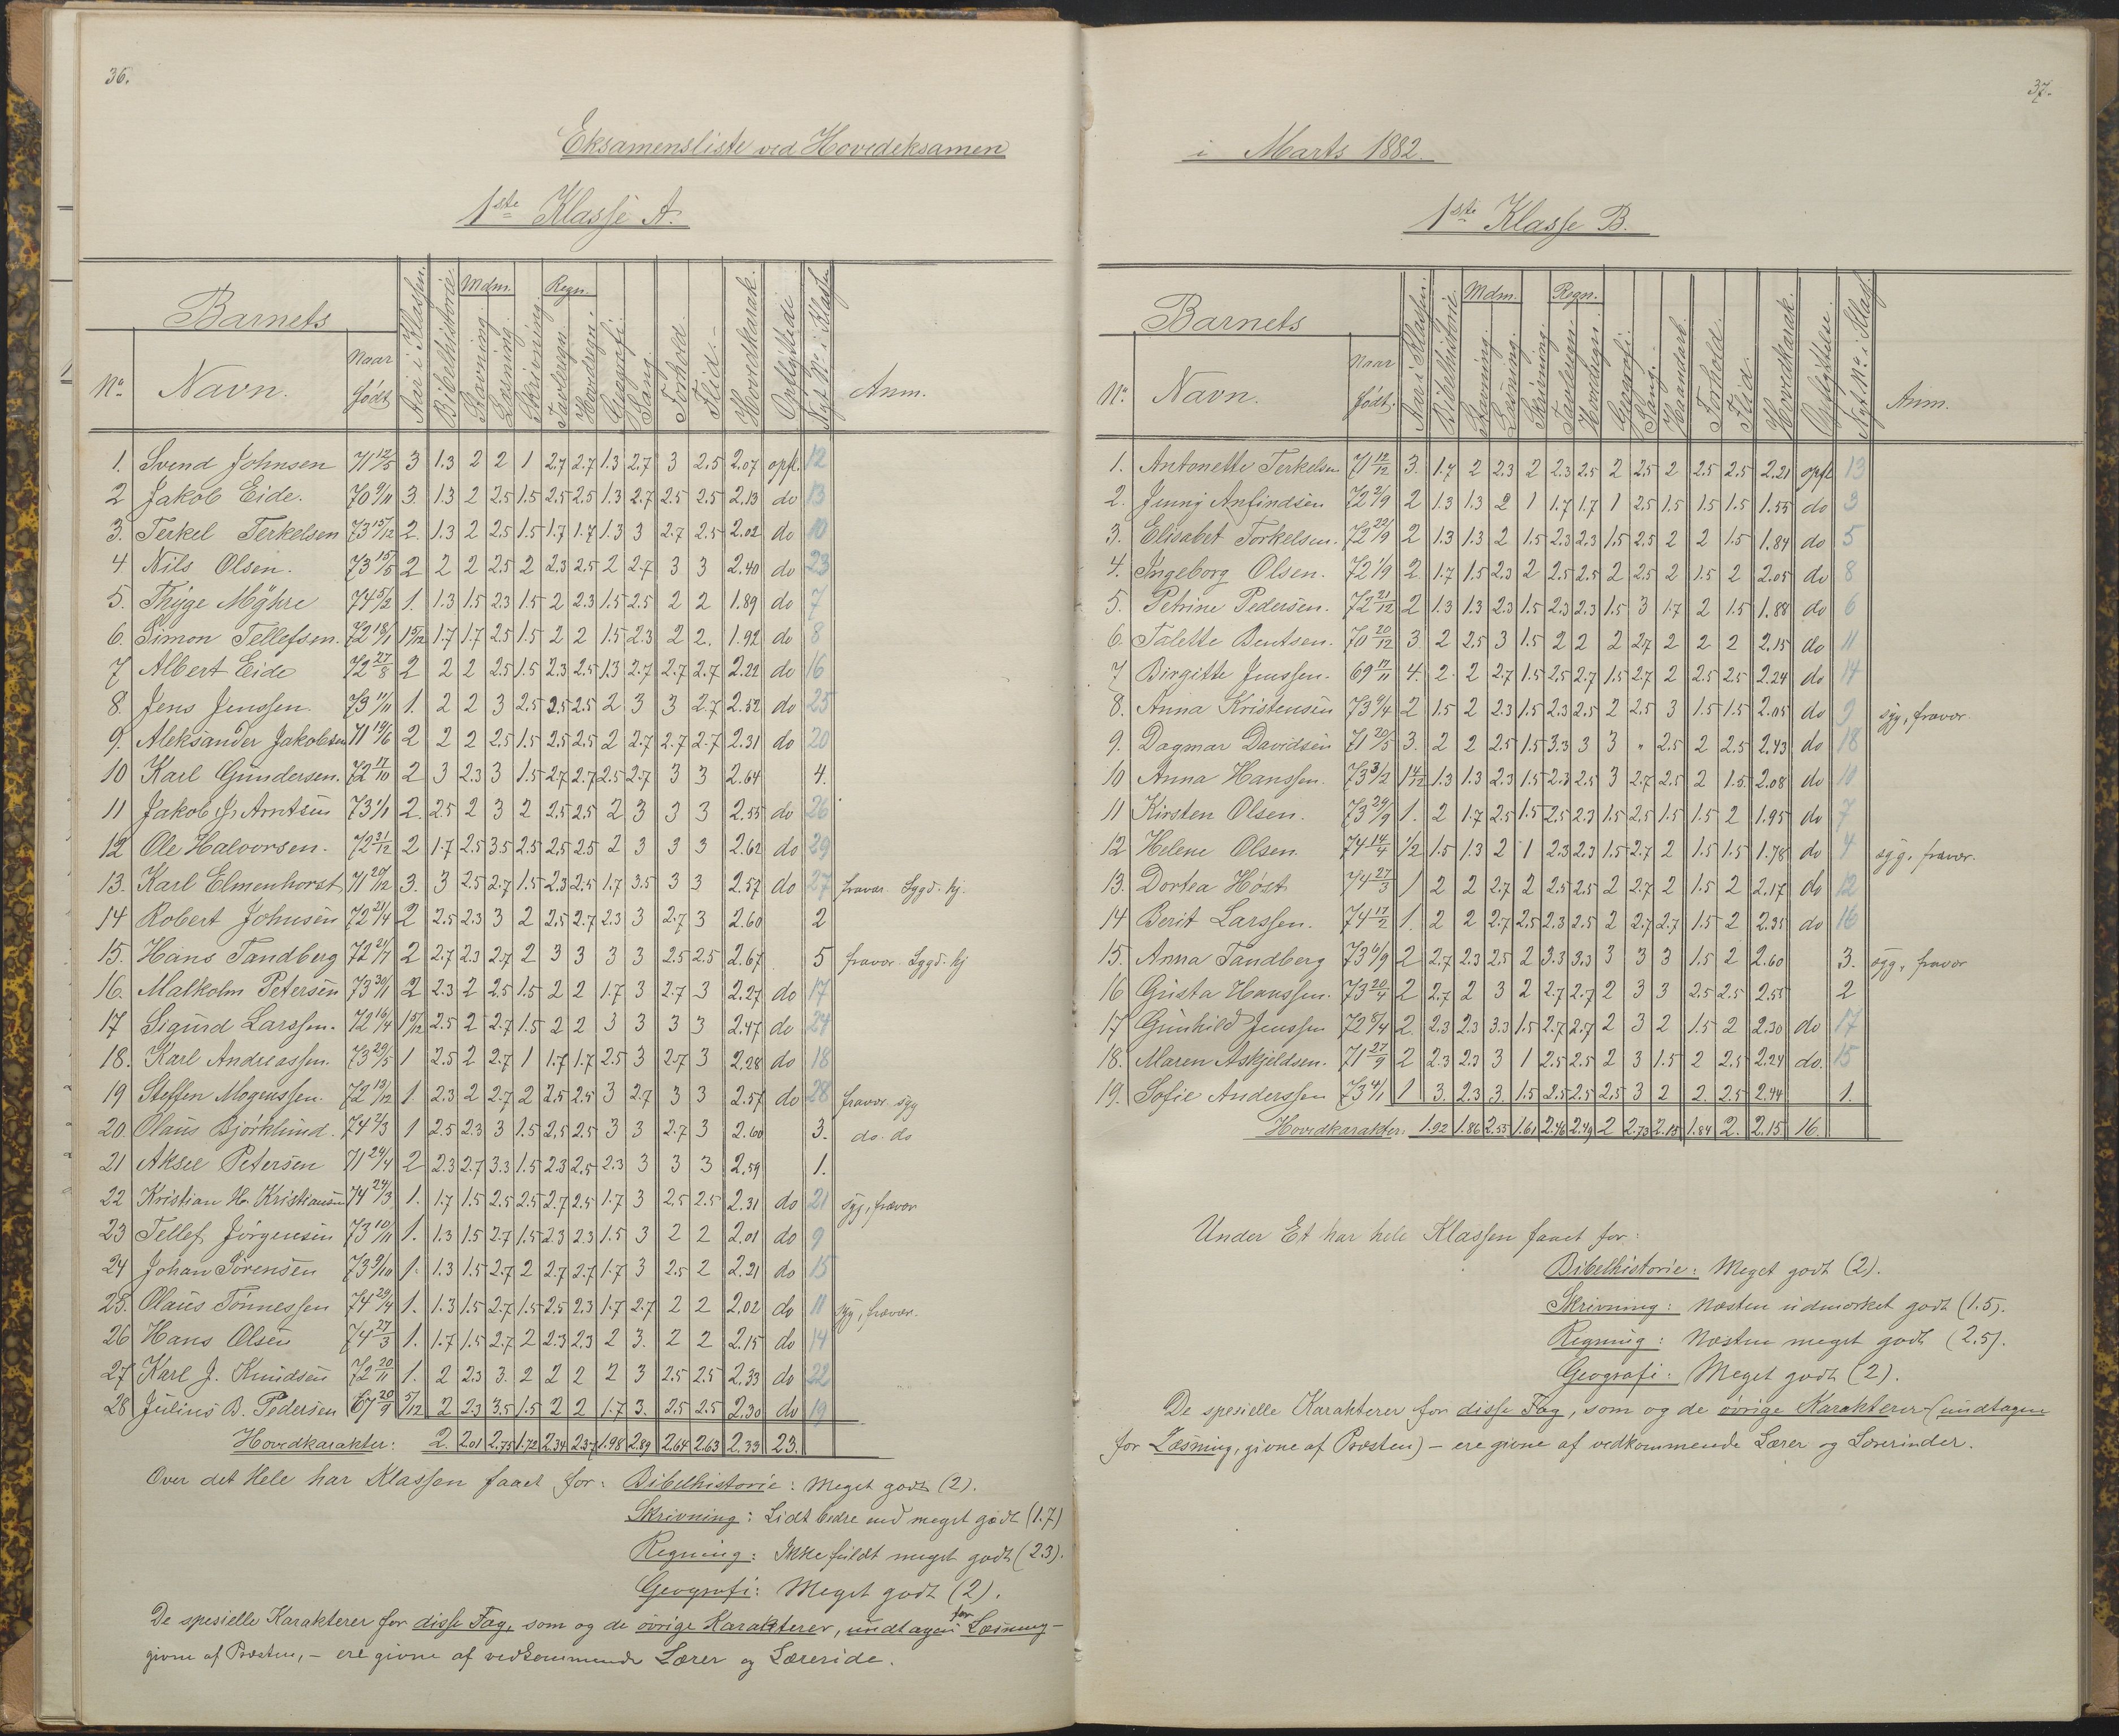 36.
Eksamensliste ved Hovedeksamen
1ste Klasse A.
Barnets
No. Navn. Naar født Aar i Klassen. Bibelhistorie. Mdm. Stavning. Læsning. Skrivning. Regn. Tavleregn. Hovedregn. Geografi. Sang. Forhold. Flid. Hovedkarak. Opflyttede Nyt No. i Klassen Anm.
1. Svend Johnsen 71 12/5 3 1.3 2 2 1 2.7 2.7 1.3 2.7 3 2.5 2.07 opfl. 12
2 Jakob Eide. 70 9/11 3. 1.3 2 2.5 1.5 2.5 2.5 1.3 2.7 2.5 2.5 2.13 do 13
3. Terkel Terkelsen 73 15/12 2. 1.3 2 2.5 1.5 1.7 1.7 1.3 3 2.7 2.5 2.02 do 10
4. Nils Olsen. 73 15/5 2 2 2 2.5 2 2.3 2.5 2 2.7 3 3 2.40 do 23
5. Thyge Myhre 74 5/2 1. 1.3 1.5 2.3 1.5 2 2.3 1.5 2.5 2 2 1.89 do 7
6. Simon Tellefsen. 72 18/1 1 5/12 1.7 1.7 2.5 1.5 2 2 1.5 2.3 2 2. 1.92 do 8
7 Albert Eide 72 27/8 2 2 2 2.5 1.5 2.3 2.5 1.3 2.7 2.7 2.7 2.22 do 16
8. Jens Jenssen. 73 11/11 1. 2 2 3 2.5 2.5 2.5 2 3 3 2.7 2.52 do 25
9. Aleksander Jakobsen 71 19/6 2 2 2 2.5 1.5 2.5 2.5 2 2.7 2.7 2.7 2.31 do 20
10 Karl Gundersen. 72 17/10 2 3 2.3 3 1.5 2.7 2.7 2.5 2.7 3 3 2.64 4.
11 Jakob J. Arntsen 73 1/1 2. 2.5 2 3 2 2.5 2.5 2 3 3 3 2.55 do 26
12 Ole Halvorsen. 72 31/12 2 1.7 2.5 3.5 2.5 2.5 2.5 2 3 3 3 2.62 do 29
13. Karl Elmenhorst 71 29/12 3. 3 2.5 2.7 1.5 2.3 2.5 1.7 3.5 3 3 2.57 do 27 fravær. Sygd. hj.
14 Robert Johnsen 72 21/4 2 2.5 2.3 3 2 2.5 2.7 2.3 3 2.7 3 2.60 2
15. Hans Tandberg 72 24/7 2 2.7 2.3 2.7 2 3 3 3 3 2.5 2.5 2.67 5 fravær. Sygd. hj
16. Malkolm Petersen 73 30/11 2 2.3 2 2.5 1.5 2 2 1.7 3 2.7 3 2.27 do 17
17 Sigurd Larssen. 72 16/4 1 5/12 2.5 2 2.7 1.5 2 2 3 3 3 3 2.47 do 24
18. Karl Andreassen. 73 29/5 1 2.5 2 2.7 1 1.7 1.7 2.5 3 2.7 3 2.28 do 18
19 Steffen Mogenssen. 72 19/12 1. 2.3 2 2.7 2 2.5 2.5 3 2.7 3 3 2.57 do 28 fravær. syg
20. Olaus Bjørklund. 74 2/3 1 2.5 2.3 3 1.5 2.5 2.5 3 3 2.7 3 2.60 3. do. do
21 Aksel Petersen 71 24/4 2 2.3 2.7 3.3 1.5 2.3 2.5 2.3 3 3 3 2.59 1.
22 Kristian H. Kristiansen 74 24/3 1. 1.7 1.5 2.5 2.5 2.7 2.5 1.7 3 2.5 2.5 2.31 do 21 syg, fravær
23 Tellef Jörgensen 73 10/11 1. 1.3 1.5 2.7 1.5 2.3 2.3 1.5 3 2 2 2.01 do 9
24 Johan Sörensen 73 9/10 1. 1.3 1.5 2.7 2 2.7 2.7 1.7 3 2.5 2 2.21 do 15
25. Olaus Tönnessen 74 29/4 1. 1.3 1.5 2.7 1.5 2.5 2.3 1.7 2.7 2 2 2.02 do 11 syg, fravær.
26 Hans Olsen 74 27/3 1. 1.7 1.5 2.7 2 2.3 2.3 2 3. 2 2 2.15 do 14
27 Karl J. Knudsen 72 20/11 1. 2 2.3 3. 2 2 2 2 3 2.5 2.5 2.33 do 22
28 Julius B. Pedersen 67 20/9 5/12 2 2.3 3.5 1.5 2 2 1.7 3. 2.5 2.5 2.30 do 19
Hovedkarakter: 2. 2.01 2.75 1.72 2.34 2.37 1.98 2.89 2.64 2.63 2.33 23.
Over det Hele har Klassen faaet for: Bibelhistorie: Meget godt (2).
Skrivning: Lidt bedre end meget godt (1.7)
Regning: Ikke fuldt meget godt (2.3).
Geografi: Meget godt (2).
De spesielle Karakterer for disse Fag, som og de övrige Karakterer, undtagen for Læsning –
givne af Præsten, – ere givne af vedkommende Lærer og Læreride.
37.
i Marts 1882.
1ste Klasse B.
Barnets
No. Navn. Naar født. Aar i Klassen. Bibelhistorie. Mdm. Stavning. Læsning. Skrivning. Regn. Tavleregn. Hovedregn. Geografi. Sang. Haandarb. Forhold. Flid. Hovedkarak. Opflyttelse. Nyt No. i Klas. Anm.
1. Antonette Terkelsen 71 12/12 3. 1.7 2 2.3 2 2.3 2.5 2 2.5 2 2.5 2.5 2.21 opfl 13
2. Jenny Anfindsen 72 2/9 2 1.3 1.3 2 1 1.7 1.7 1 2.5 1.5 1.5 1.5 1.55 do 3
3. Elisabet Torkelsen. 72 22/9 2 1.3 1.3 2 1.5 2.3 2.3 1.5 2.5 2 2 1.5 1.84 do 5
4. Ingeborg Olsen. 72 1/9 2 1.7 1.5 2.3 2 2.5 2.5 2 2.5 2 1.5 2 2.05 do 8
5. Petrine Pedersen. 72 21/12 2 1.3 1.3 2.3 1.5 2.3 2.3 1.5 3 1.7 2 1.5 1.88 do 6
6. Talette Bentsen. 70 20/12 3. 2 2.5 3 1.5 2 2 2 2.7 2 2 2 2.15 do 11
7 Birgitte Jenssen. 69 17/11 4. 2. 2 2.7 1.5 2.5 2.7 1.5 2.7 2 2.5 2.5 2.24 do 14
8. Anna Kristensen 73 9/4 2 1.5 2 2.3 1.5 2.3 2.5 2 2.5 3 1.5 1.5 2.05 do 9 syg, fravær.
9. Dagmar Davidsen 71 20/5 3. 2 2 2.5 1.5 3.3 3 3 " 2.5 2 2.5 2.43 do 18
10 Anna Hanssen. 73 3/2 1 4/12 1.3 1.3 2.3 1.5 2.3 2.5 3 2.7 2.5 2 1.5 2.08 do 10
11 Kirsten Olsen. 73 29/9 1. 2 1.7 2.5 1.5 2.5 2.3 1.5 2.5 1.5 1.5 2 1.95 do 7
12 Helene Olsen 74 14/4 1/2 1.5 1.3 2 1 2.3 2.3 1.5 2.7 2 1.5 1.5 1.78 do 4 syg, fravær.
13. Dortea Höst 74 27/3 1 2 2 2.7 2 2.5 2.5 2 2.7 2 1.5 2 2.17 do 12
14 Berit Larssen. 74 17/2 1. 2 2 2.7 2.5 2.3 2.5 2 2.7 2.7 1.5 2 2.35 do 16
15. Anna Tandberg 73 6/9 2 2.7 2.3 2.5 2 3.3 3.3 3 3 3 1.5 2 2.60 3. syg, fravær
16 Gusta Hanssen. 73 20/4 2 2.7 2 3 2 2.7 2.7 2 3 3 2.5 2.5 2.55 2
17 Gunhild Jenssen 72 8/4 2 2.3 2.3 3.3 1.5 2.7 2.7 2 3 2 1.5 2 2.30 do 17
18. Maren Askjeldsen. 71 27/9 2 2.3 2.3 3 1 2.5 2.5 2 3 1.5 2 2.5 2.24 do. 15
19. Sofie Anderssen 73 4/1 1 3. 2.3 3. 1.5 2.5 2.5 2.5 3 2 2. 2.5 2.44 1.
Hovedkarakter: 1.92 1.86 2.55 1.61 2.46 2.49 2 2.73 2.15 1.84 2. 2.15 16.
Under Et har hele Klassen faaet for:
Bibelhistorie: Meget godt (2).
Skrivning: Næsten udmærket godt (1.5).
Regning: Næsten meget godt (2.5).
Geografi: Meget godt (2).
De spesielle Karakterer for disse Fag, som og de övrige Karakterer (undtagen
for Læsning, givne af Præsten) – ere givne af vedkommende Lærer og Lærerinder.